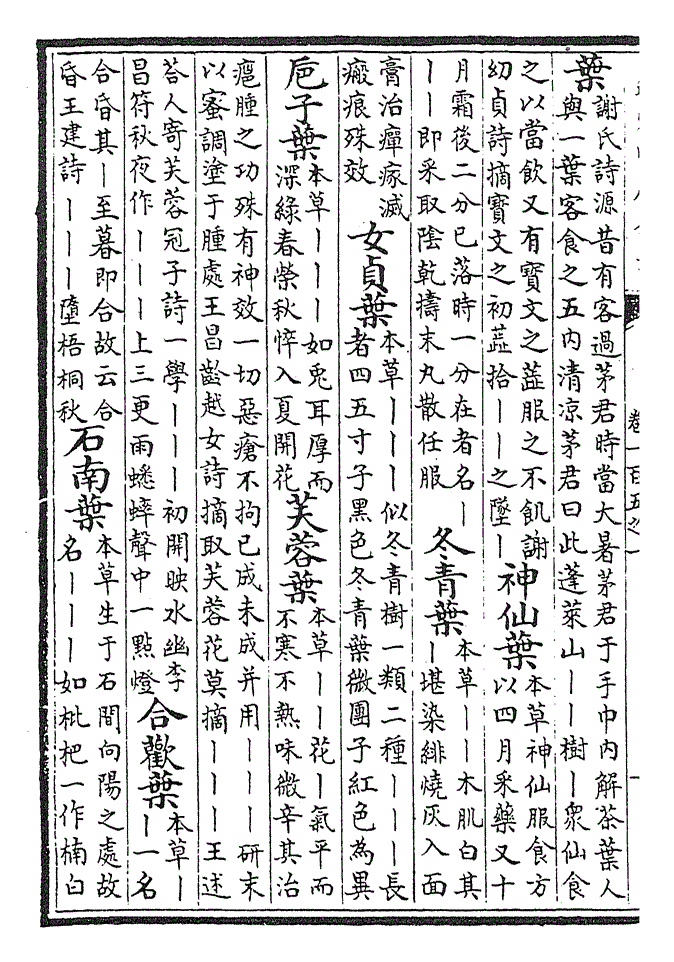 卷一百五之一
葉
謝氏詩源昔有客過茅君時當大暑茅君于手巾内解茶葉人
與一葉客食之五内清凉茅君曰此蓬萊山丨丨樹丨衆仙食
之以當飲又有寳文之蕋服之不飢謝
幼貞詩摘寳文之初蕋拾丨丨之墜丨
神仙葉
本草神仙服食方
以四月采藥又十
月霜後二分已落時一分在者名丨
丨丨即采取陰乾擣末丸散任服
冬青葉
本草丨丨木肌白其
丨堪染緋燒灰入面
膏治癉瘃滅
瘢痕殊效
女貞葉
本草丨丨丨似冬青樹一類二種丨丨丨長
者四五寸子黑色冬青葉微團子紅色為異
巵子葉
本草丨丨丨如兎耳厚而
深緑春榮秋悴入夏開花
芙蓉葉
本草丨丨花丨氣平而
不寒不熱味微辛其治
瘡腫之功殊有神效一切惡瘡不拘已成未成并用丨丨丨研末
以蜜調塗于腫處王昌齡越女詩摘取芙蓉花莫摘丨丨丨王述
荅人寄芙蓉冠子詩一學丨丨丨初開映水幽李
昌符秋夜作丨丨丨上三更雨蟋蟀聲中一點燈
合歡葉
本草丨
丨一名
合昏其丨至暮即合故云合
昏王建詩丨丨丨墮梧桐秋
石南葉
本草生于石間向陽之處故
名丨丨丨如枇杷一作楠白